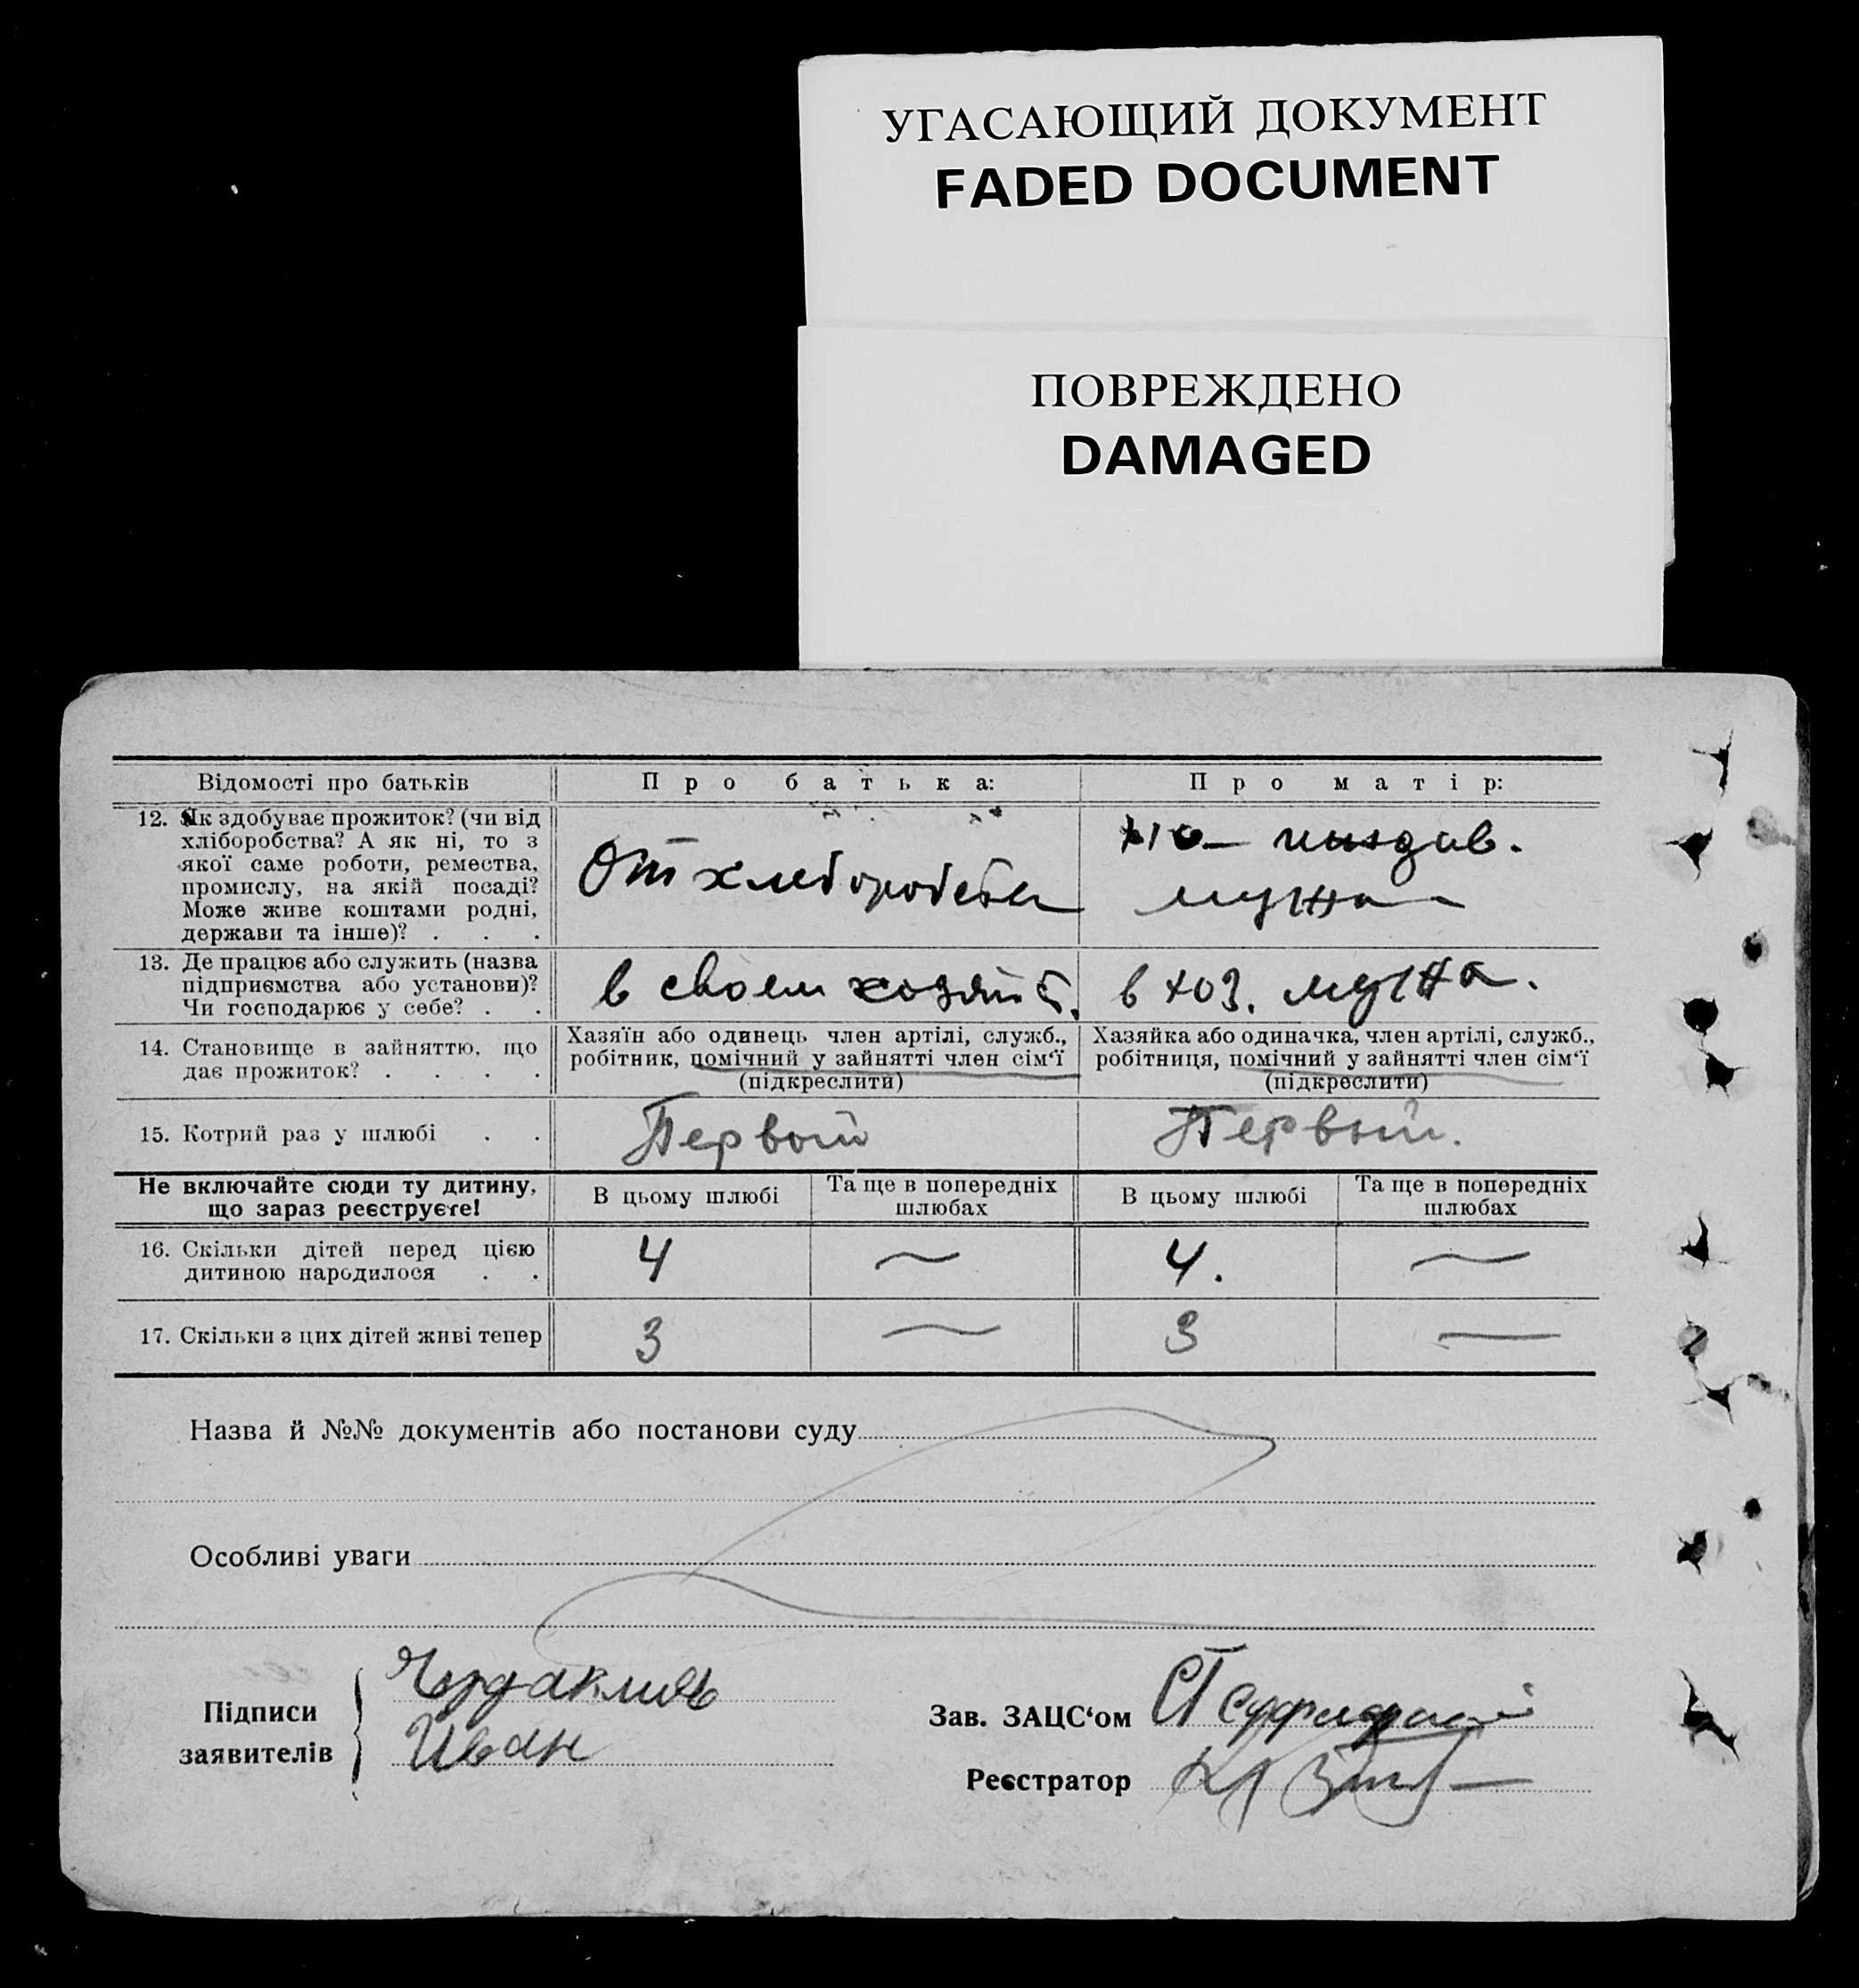 УГАСАЮЩИЙ ДОКУМЕНТ
FADED DOCUMENT
ПОВРЕЖДЕНО
DAMAGED
Відомості про батьків
Про батька:
Про матір:
12. Як здобуває прожиток? (чи від
хліборобства? А як ні, то з
якої саме роботи, ремества,
промислу, на якій посаді?
Може живе коштами родні,
держави та інше)? . . .
От хлеборобства
на иждив.
мужа
13. Де працює або служить (назва
підприємства або установи)?
Чи господарює у себе? . .
в своем хозяйств.
в хоз. мужа.
14. Становище в зайняттю, що
дає прожиток? . . . .
Хазяїн або одинець член артілі, служб.,
робітник, помічний у зайнятті член сім‘ї
(підкреслити)
Хазяйка або одиначка, член артілі, служб.,
робітниця, помічний у зайнятті член сім‘ї
(підкреслити)
15. Котрий раз у шлюбі . .
Первый
Первый.
Не включайте сюди ту дитину,
що зараз реєструєте!
В цьому шлюбі
Та ще в попередніх
шлюбах
В цьому шлюбі
Та ще в попередніх
шлюбах
16. Скільки дітей перед цією
дитиною народилося . .
4
—
4.
—
17. Скільки з цих дітей живі тепер
3
—
3
—
Назва й №№ документів або постанови суду
Особливі уваги
Підписи
заявителів
Иван
Зав. ЗАЦС‘ом
Реєстратор